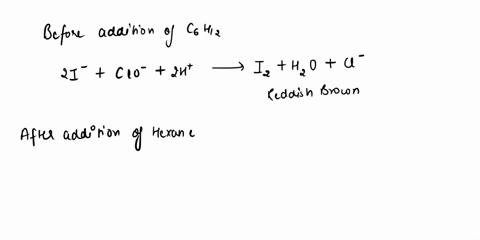 Before addition of C₆H₁₂
2I⁻ + ClO⁻ + 2H⁺ ⟶ I₂ + H₂O + Cl⁻
Reddish Brown
After addition of Hexane